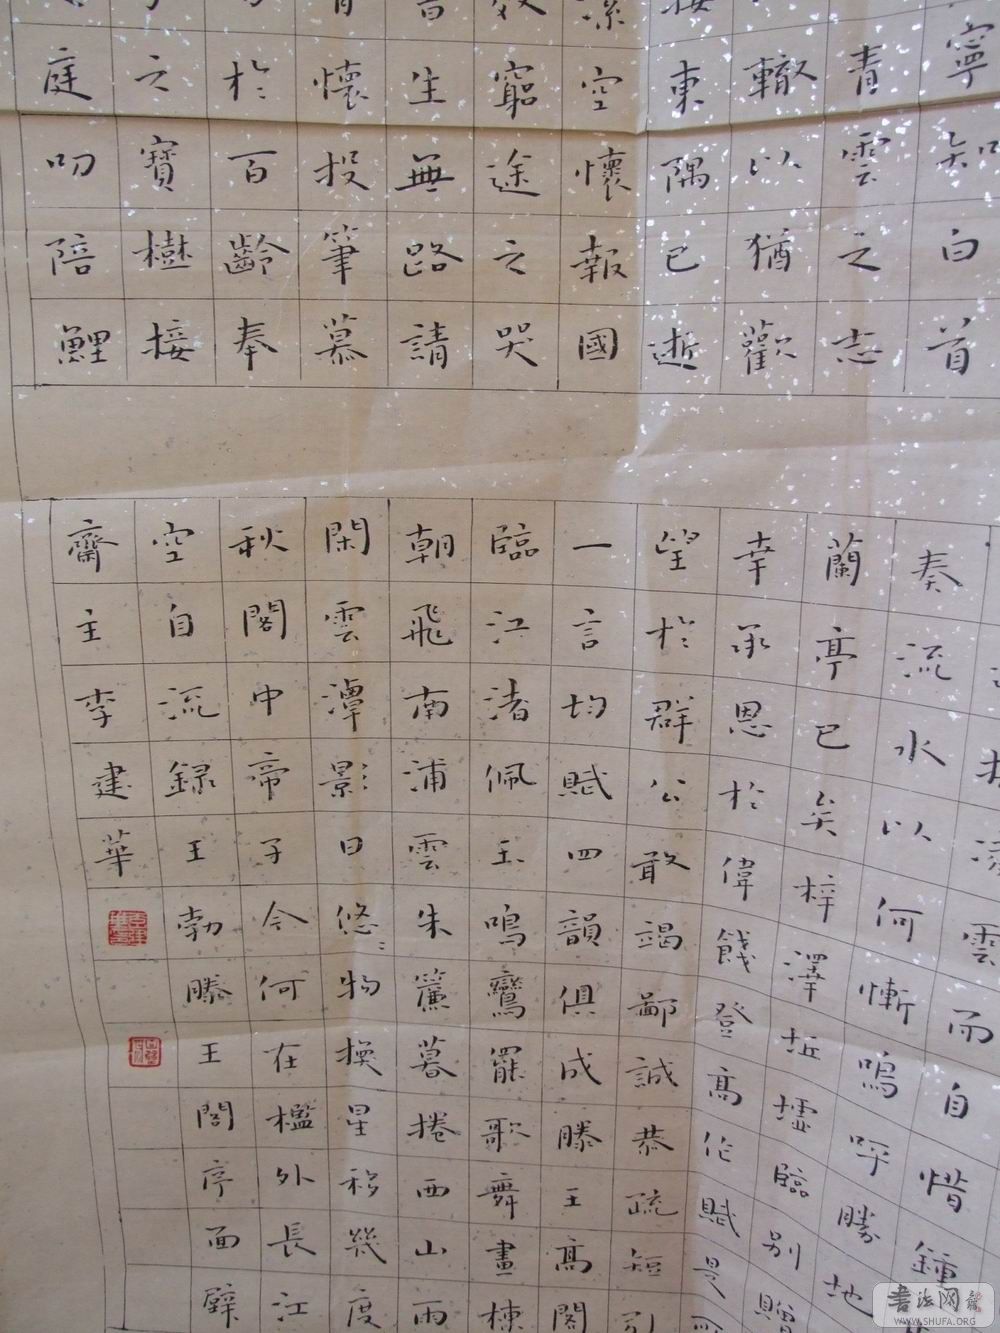 寧知白首
青雲之志
轍以猶歡
東隅已逝
潔空懷報國
效窮途之哭
生無路請
懷投筆慕
於百齡奉
之寶樹接
庭叨陪鯉
雲而自惜鍾
奏流水以何慚嗚呼勝地
蘭亭已矣梓澤坵墟臨別贈
幸承恩於偉餞登高作賦是
望於群公敢竭鄙誠恭疏短引
一言均賦四韻俱成滕王高閣
臨江渚佩玉鳴鸞罷歌舞畫棟
朝飛南浦雲朱簾暮捲西山雨
閑雲潭影日悠々物換星移幾度
秋閣中帝子今何在檻外長江
空自流録王勃滕王閣序面壁
齋主李建華
书法网
WWW.SHUFA.ORG